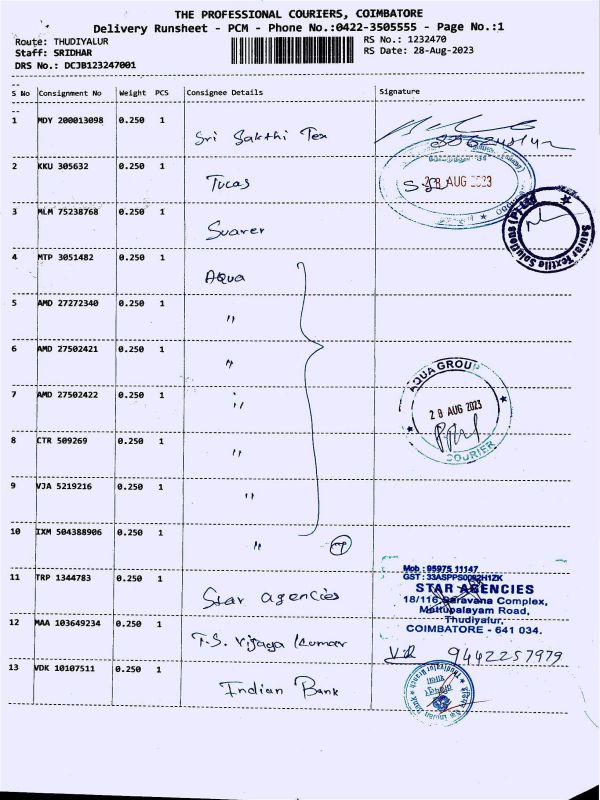 THE PROFESSIONAL COURIERS, COIMBATORE
Delivery Runsheet - PCM - Phone No.:0422-3505555 - Page No.:1
Route: THUDIYALUR
RS No.: 1232470
Staff: SRIDHAR
RS Date: 28-Aug-2023
DRS No.: DCJB123247001
S No Consignment No Weight PCS Consignee Details Signature
1 MDY 200013098 0.250 1 Sri Sakthi Tex
2 KKU 305632 0.250 1 Tucas
28 AUG 2023
3 MLM 75238768 0.250 1 Suarer
Saurer Textile Solutions (P) Ltd
4 MTP 3051482 0.250 1 AQua
5 AMD 27272340 0.250 1 "
6 AMD 27502421 0.250 1 "
7 AMD 27502422 0.250 1 "
AQUA GROUP
28 AUG 2023
COURIER
8 CTR 509269 0.250 1 "
9 VJA 5219216 0.250 1 "
10 IXM 504388906 0.250 1 " 7
11 TRP 1344783 0.250 1 Star agencies
Mob : 95975 11147
GST : 33ASPPS0092H1ZK
STAR AGENCIES
18/116, Saravana Complex,
Mettupalayam Road,
Thudiyalur,
COIMBATORE - 641 034.
12 MAA 103649234 0.250 1 T.S. Vijaya Kumar
9442257979
13 VDK 10107511 0.250 1 Indian Bank